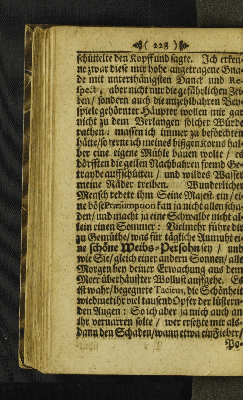 ( 228 )
schüttelte den Kopff und sagte. Ich erken-
ne zwar diese mir hohe angetragene Gna-
de mit unterthänigsten Danck und Re-
spect, aber nicht nur die gefährlichen Zei-
ten / sondern auch die unzehlbahren Bey-
spiele gehörnter Häupter wollen mir gar
nicht zu dem Verlangen solcher Würde
rathen: massen ich immer zu beförchten
hätte / so ferne ich meines bißgen Korns hal-
ber eine eigene Mühle bauen wolte / es
dörfften die geilen Nachbahren fremd Ge-
trayde auffschütten / und wildes Wasser
meine Räder treiben. Wunderlicher
Mensch redete ihm Seine Majest. ein / ei-
ne böse Præsumption kan ja nicht allen scha-
den / und macht ja eine Schwalbe nicht al-
lein einen Sommer: Vielmehr führe dir
zu Gemüthe / was für tägliche Anmuth ei-
ne schöne Weibs-Persohn sey / und
wie Sie / gleich einer andern Sonnen / alle
Morgen bey deiner Erwachung aus dem
Meer überhäuffter Wollust auffgehe. Es
ist wahr / begegnete Tacitus, die Schönheit
wiedmet ihr viel tausend Opfer der lüstern-
den Augen: So ich aber ja mich auch an
ihr vernarren solte / wer ersetzte mir als-
dann den Schaden / wann etwa ein Fieber /